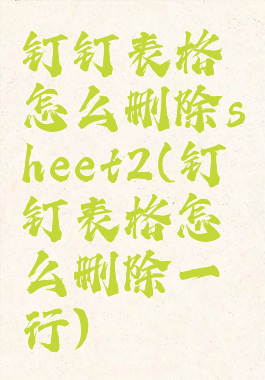 钉钉表格
怎么删除s
heet2(钉
钉表格怎
么删除一
行)